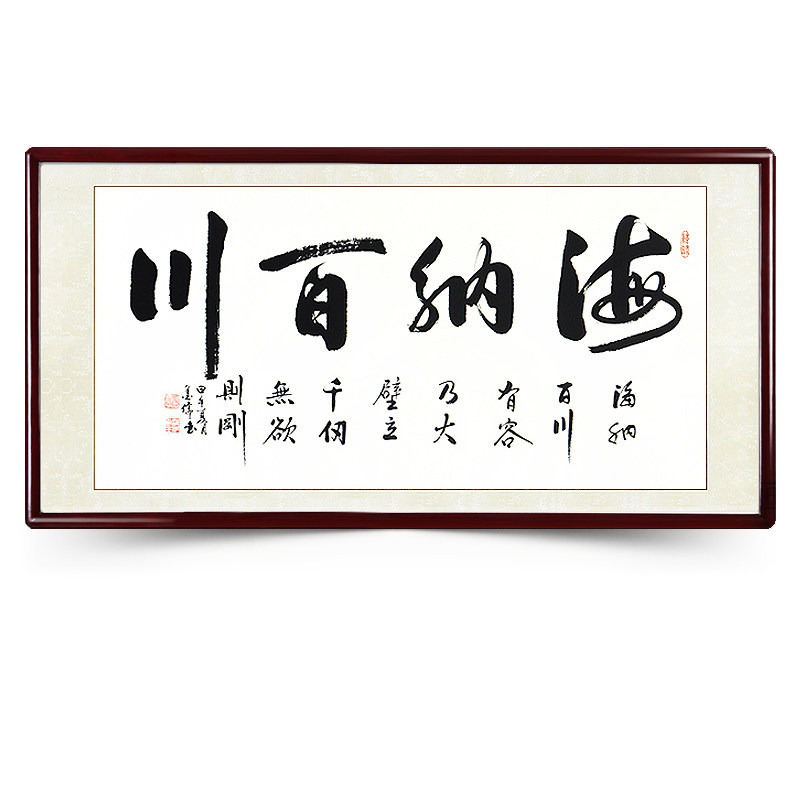 海納百川
海納
百川
有容
乃大
壁立
千仞
無欲
則剛
甲午夏月